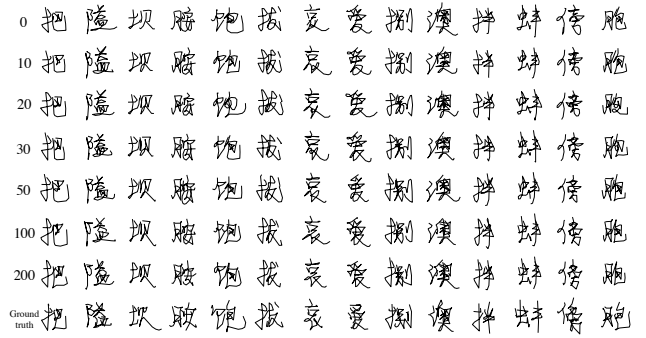 0 把 隘 坝 胺 饱 拔 哀 爱 捌 澳 拌 蚌 傍 胞
10 把 隘 坝 胺 饱 拔 哀 爱 捌 澳 拌 蚌 傍 胞
20 把 隘 坝 胺 饱 拔 哀 爱 捌 澳 拌 蚌 傍 胞
30 把 隘 坝 胺 饱 拔 哀 爱 捌 澳 拌 蚌 傍 胞
50 把 隘 坝 胺 饱 拔 哀 爱 捌 澳 拌 蚌 傍 胞
100 把 隘 坝 胺 饱 拔 哀 爱 捌 澳 拌 蚌 傍 胞
200 把 隘 坝 胺 饱 拔 哀 爱 捌 澳 拌 蚌 傍 胞
Ground truth 把 隘 坝 胺 饱 拔 哀 爱 捌 澳 拌 蚌 傍 胞